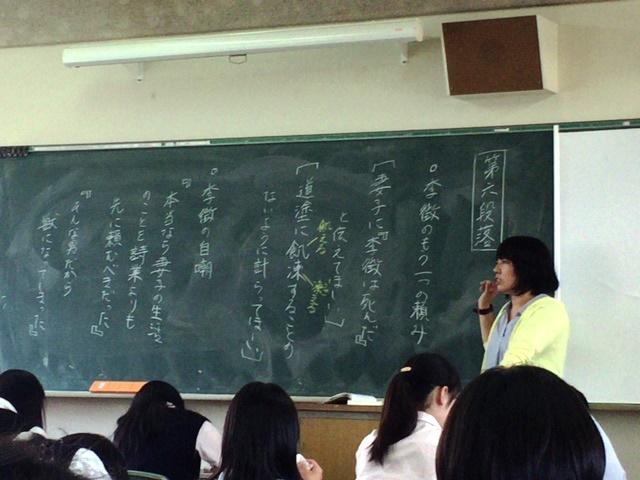 第六段落
○李徴のもう一つの頼み
「妻子に『李徴は死んだ』
と伝えてほしい」
「道途に飢凍することの
飢える
凍える
ないように計らってほしい」
○李徴の自嘲
『本当なら妻子の生活
のことを詩業よりも
先に頼むべきだった』
『そんな男だから
獣になってしまった』